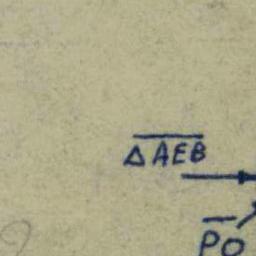 ΔAEB
PO